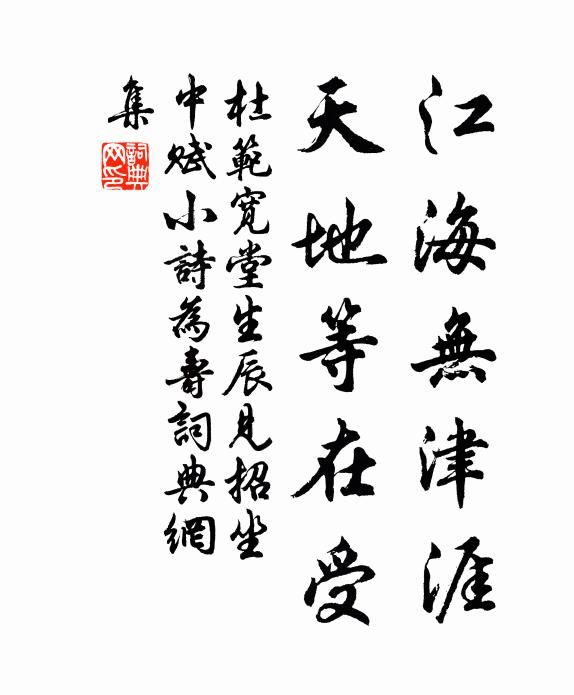 江海無津涯
天地等在受
杜範寬堂生辰見招坐
中賦小詩為壽詞典網
集
詞典
网印